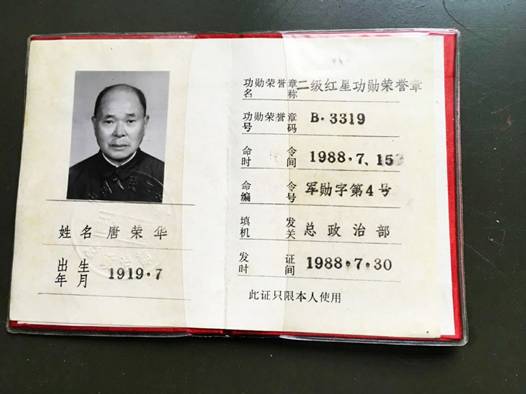 功勋荣誉章名称 二级红星功勋荣誉章
功勋荣誉章号码 B·3319
命令时间 1988·7、15
命令编号 军勋字第4号
填发机关 总政治部
发证时间 1988·7·30
此证只限本人使用
姓名 唐荣华
出生年月 1919·7